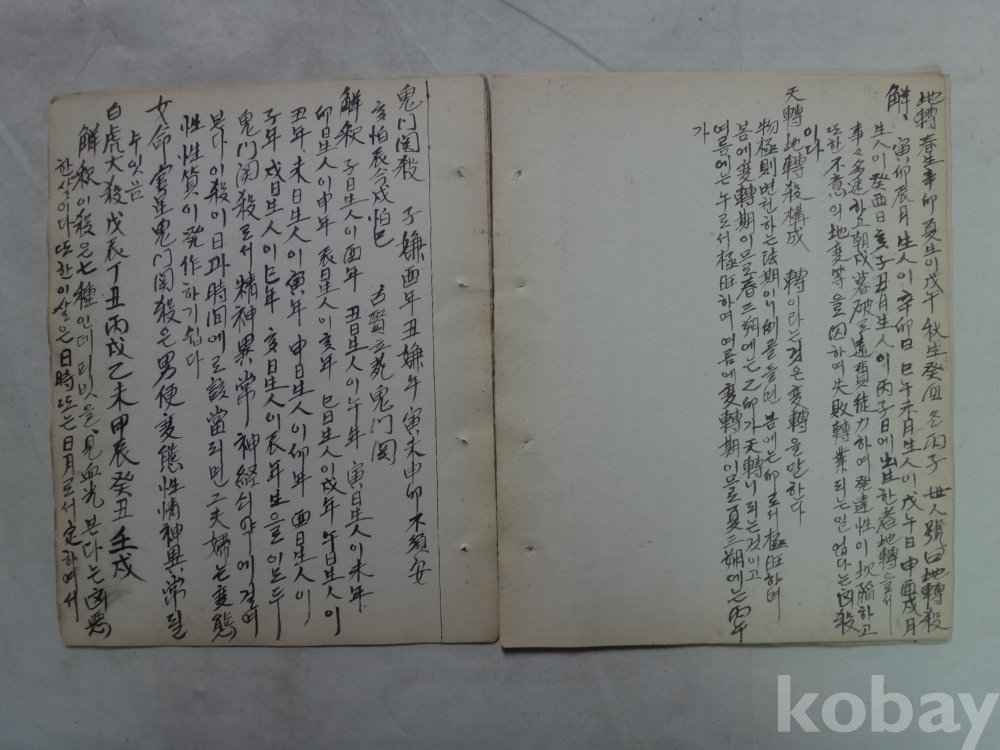 地轉 春生辛卯 夏生이戊午 秋生癸酉 冬丙子 世人號曰地轉殺
解 寅卯辰月 生人이 辛卯日 巳午未月生人이 戊午日 申酉戌月
生人이 癸酉日 亥子丑月生人이 丙子日에 出生한者 地轉으로서
事々多迷하고 朝成暮破로 遠費徒力하여 発達性이 欠陷하고
또한 不意의 地変等을 因하여 失敗轉業되는 일 업다는 凶殺
이다
天轉地轉殺構成 轉이라는것은 変轉을 말한다
物極則변전하는 法期이니 例를 들면 봄에는 卯로서 極旺하며
봄에 変轉期이므로 春三朔에는 乙卯가 天轉니되는것이고
여름에는 午로서 極旺하며 여름에 変轉期이므로 夏三朔에는 丙午
가
鬼门関殺 子嫌酉年 丑嫌午 寅未申卯不須安
亥怕辰兮戌怕巳 古賢立苑鬼门関
解釈 子日生人이 酉年 丑日生人이 午年 寅日生人이 未年
卯日生人이 申年 辰日生人이 亥年 巳日生人이 戌年 午日生人이
丑年 未日生人이 寅年 申日生人이 卯年 酉日生人이
子年 戌日生人이 巳年 亥日生人이 辰年生을 이르두
鬼门関殺로서 精神異常 神経쇠약에 걸여
본다 이殺이 日과 時間에로 該當되면 그夫婦는 変態
性性質이 発作하기 쉽다
女命 官星鬼门関殺은 男便変態性情神異常될
수 잇음
白虎大殺 戊辰 丁丑 丙戌 乙未 甲辰 癸丑 壬戌
解釈 이殺은 七種인데 피빗을 見血光 본다는 凶悪
한살이다 또한 이살은 日時또는 日月로서 定하여서
kobay